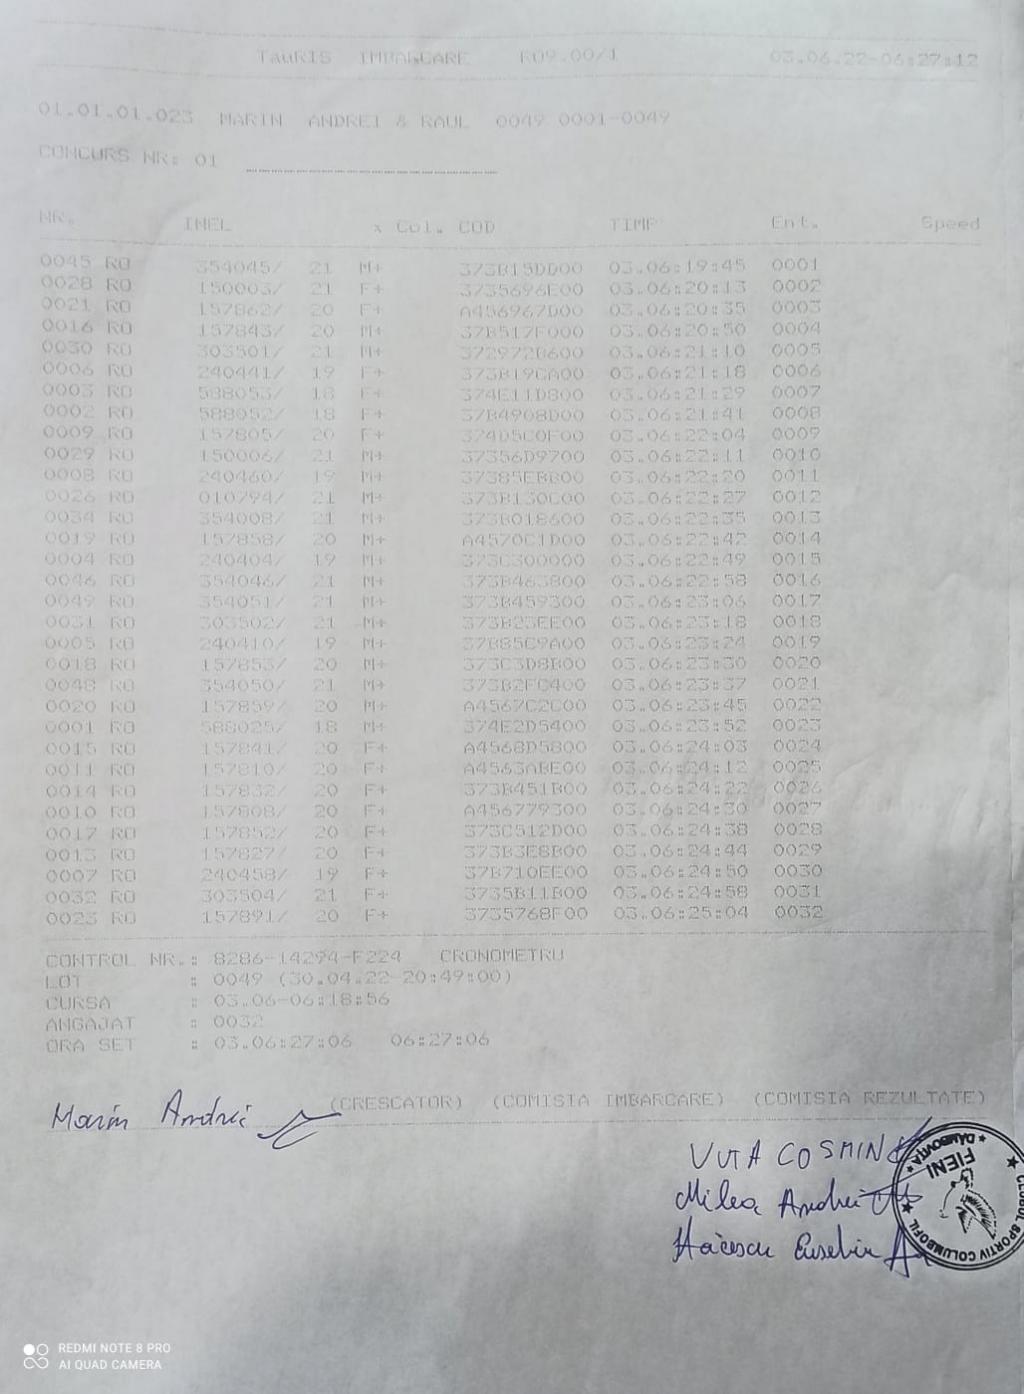 TauRIS IMBARCARE R09.00/1 03.06.22-06:27:12
01.01.01.023 MARIN ANDREI & RAUL 0049 0001-0049
CONCURS NR: 01
NR. INEL x Col. COD TIMP Ent. Speed
0045 RO 354045/ 21 M+ 373B15DD00 03.06:19:45 0001
0028 RO 150003/ 21 F+ 3735696E00 03.06:20:13 0002
0021 RO 157862/ 20 F+ A456967D00 03.06:20:35 0003
0016 RO 157843/ 20 M+ 37B517F000 03.06:20:50 0004
0030 RO 303501/ 21 M+ 372972B600 03.06:21:10 0005
0006 RO 240441/ 19 F+ 373B19CA00 03.06:21:18 0006
0003 RO 588053/ 18 F+ 374E11D800 03.06:21:29 0007
0002 RO 588052/ 18 F+ 37B4908D00 03.06:21:41 0008
0009 RO 157805/ 20 F+ 374D5C0F00 03.06:22:04 0009
0029 RO 150006/ 21 M+ 37356D9700 03.06:22:11 0010
0008 RO 240460/ 19 M+ 37385EBB00 03.06:22:20 0011
0026 RO 010794/ 21 M+ 373B130C00 03.06:22:27 0012
0034 RO 354008/ 21 M+ 373B018600 03.06:22:35 0013
0019 RO 157858/ 20 M+ A4570C1D00 03.06:22:42 0014
0004 RO 240404/ 19 M+ 373C300000 03.06:22:49 0015
0046 RO 354046/ 21 M+ 373B463800 03.06:22:58 0016
0049 RO 354051/ 21 M+ 373B459300 03.06:23:06 0017
0031 RO 303502/ 21 M+ 373B23EE00 03.06:23:18 0018
0005 RO 240410/ 19 M+ 37B85C9A00 03.06:23:24 0019
0018 RO 157853/ 20 M+ 373C3D8B00 03.06:23:30 0020
0048 RO 354050/ 21 M+ 373B2FC400 03.06:23:37 0021
0020 RO 157859/ 20 M+ A4567C2C00 03.06:23:45 0022
0001 RO 588025/ 18 M+ 374E2D5400 03.06:23:52 0023
0015 RO 157841/ 20 F+ A4568D5800 03.06:24:03 0024
0011 RO 157810/ 20 F+ A4563ABE00 03.06:24:12 0025
0014 RO 157832/ 20 F+ 373B451B00 03.06:24:22 0026
0010 RO 157808/ 20 F+ A456779300 03.06:24:30 0027
0017 RO 157852/ 20 F+ 373C512D00 03.06:24:38 0028
0013 RO 157827/ 20 F+ 373B3E8B00 03.06:24:44 0029
0007 RO 240458/ 19 F+ 37B710EE00 03.06:24:50 0030
0032 RO 303504/ 21 F+ 3735B11B00 03.06:24:58 0031
0023 RO 157891/ 20 F+ 3735768F00 03.06:25:04 0032
CONTROL NR.: 8286-14294-F224 CRONOMETRU
LOT : 0049 (30.04.22-20:49:00)
CURSA : 03.06-06:18:56
ANGAJAT : 0032
ORA SET : 03.06:27:06 06:27:06
(CRESCATOR) (COMISIA IMBARCARE) (COMISIA REZULTATE)
Marin Andrei
VUTA COSMIN
Milea Andrei
Eusebiu
CLUBUL SPORTIV COLUMBOFIL
FIENI
DÂMBOVIȚA
REDMI NOTE 8 PRO
AI QUAD CAMERA